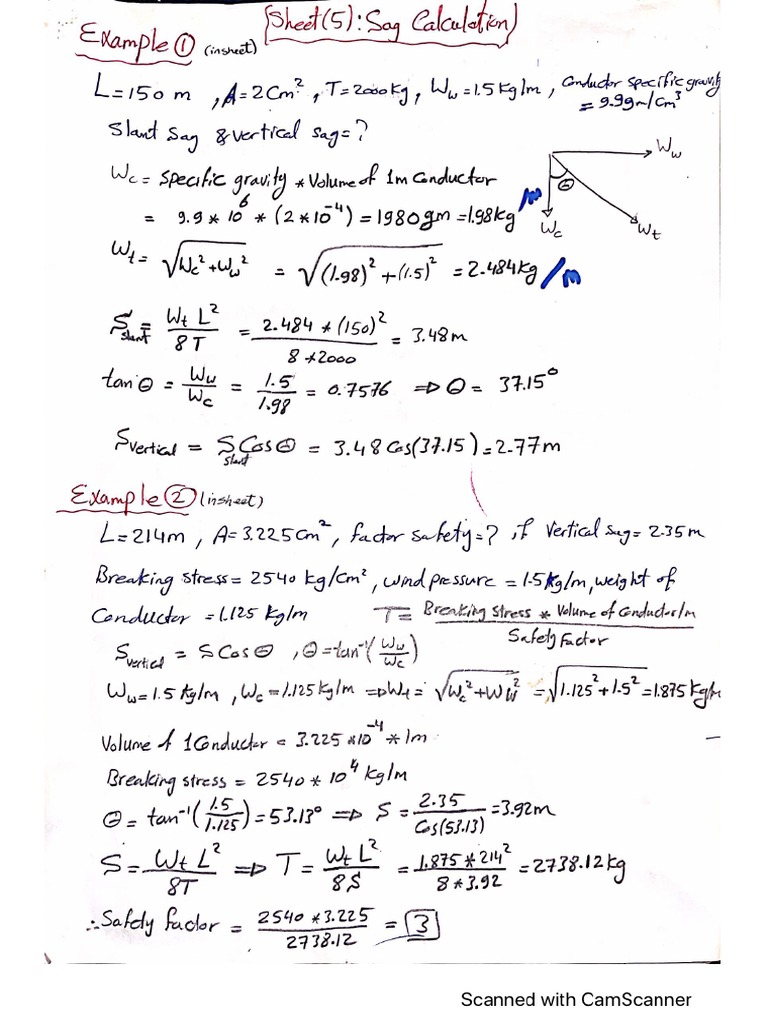 Sheet(5): Sag Calculation
Example ① (insheet)
L=150 m , A=2Cm² , T=2000kg , Ww=1.5kg/m , Conductor specific gravity
= 9.9gm/Cm³
Slant Sag & vertical sag=?
Wc = Specific gravity * Volume of 1m Conductor
= 9.9 * 10⁶ * (2*10⁻⁴) = 1980gm =1.98kg/m
Ww
θ
Wc
Wt
Wt = √(Wc²+Ww²) = √((1.98)²+(1.5)²) = 2.484kg/m
Sslant = Wt L²/8T = 2.484 * (150)²/8*2000 = 3.48m
tan θ = Ww/Wc = 1.5/1.98 = 0.7576 ⇒ θ = 37.15°
Svertical = Sslant Cos θ = 3.48 Cos(37.15) = 2.77m
Example ② (insheet)
L=214m , A=3.225Cm² , factor safety=? if Vertical sag= 2.35m
Breaking stress= 2540 kg/Cm² , wind pressure =1.5kg/m, weight of
Conductor =1.125 kg/m T= Breaking Stress * Volume of Conductor/m/Safety Factor
Svertical = S Cos θ , θ=tan⁻¹(Ww/Wc)
Ww=1.5 kg/m , Wc=1.125kg/m ⇒ Wt= √(Wc²+Ww²) =√(1.125²+1.5²) =1.875kg/m
Volume of 1 Conductor = 3.225*10⁻⁴ * 1m
Breaking stress = 2540 * 10⁴ kg/m
θ = tan⁻¹(1.5/1.125)=53.13° ⇒ S = 2.35/Cos(53.13) =3.92m
S= Wt L²/8T ⇒ T= Wt L²/8S = 1.875*214²/8*3.92 = 2738.12kg
∴ Safety factor = 2540*3.225/2738.12 = 3
Scanned with CamScanner